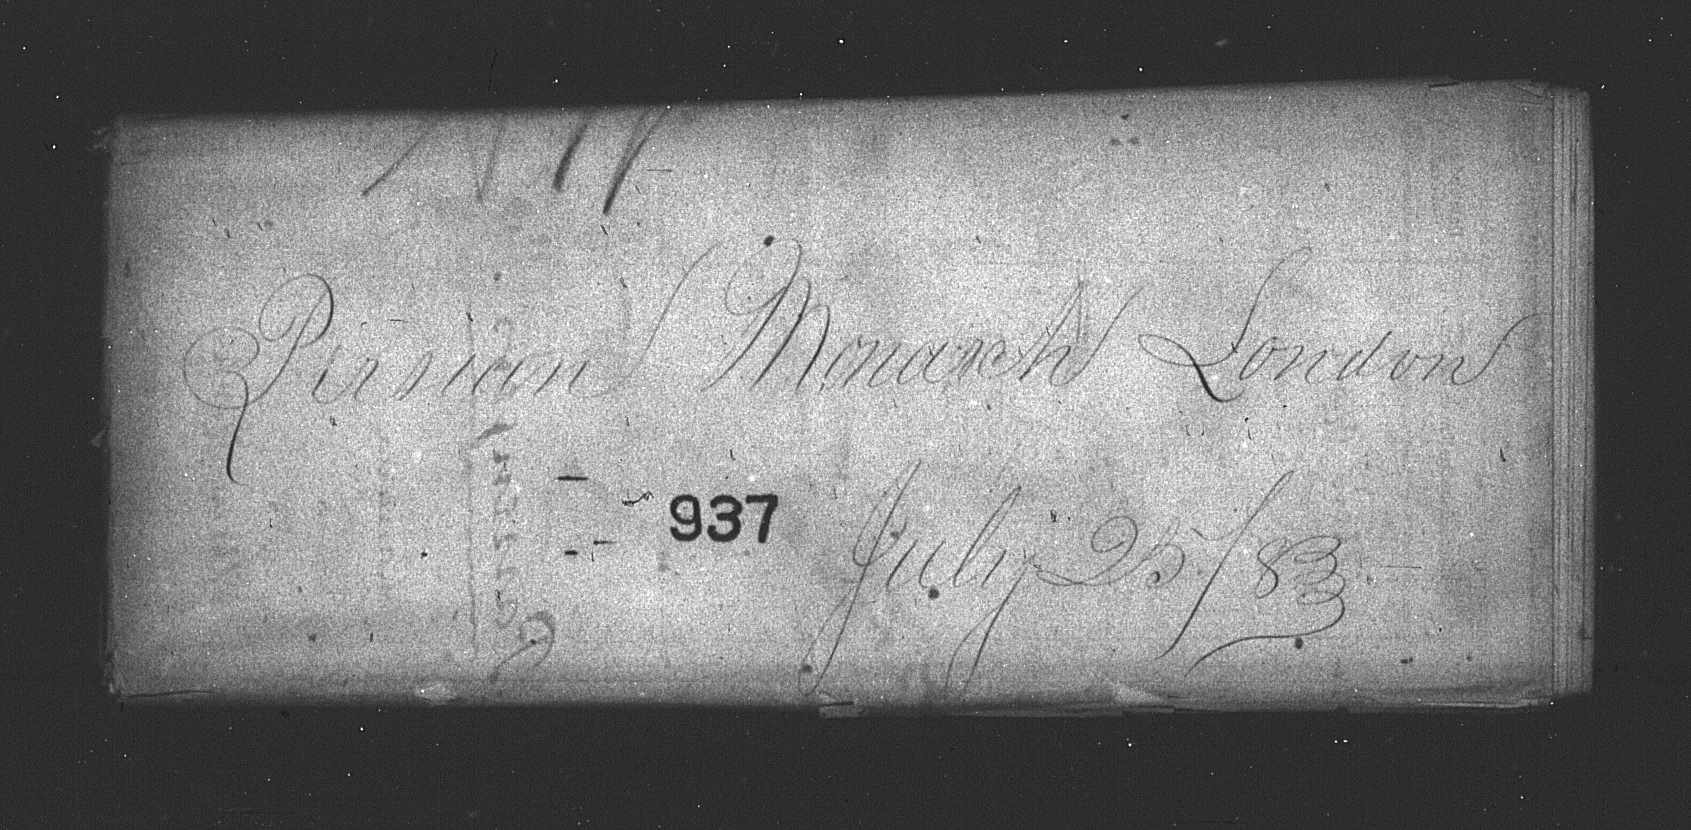 Persian Monarch London
937
July 25/83